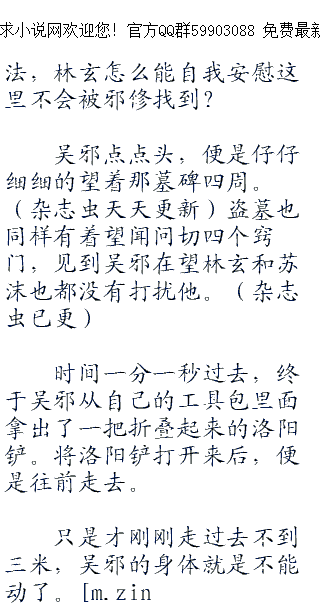 求小说网欢迎您! 官方QQ群59903088 免费最新
法，林玄怎么能自我安慰这
里不会被邪修找到？
吴邪点点头，便是仔仔
细细的望着那墓碑四周。
（杂志虫天天更新）盗墓也
同样有着望闻问切四个窍
门，见到吴邪在望林玄和苏
沫也都没有打扰他。（杂志
虫已更）
时间一分一秒过去，终
于吴邪从自己的工具包里面
拿出了一把折叠起来的洛阳
铲。将洛阳铲打开来后，便
是往前走去。
只是才刚刚走过去不到
三米，吴邪的身体就是不能
动了。[m.zin